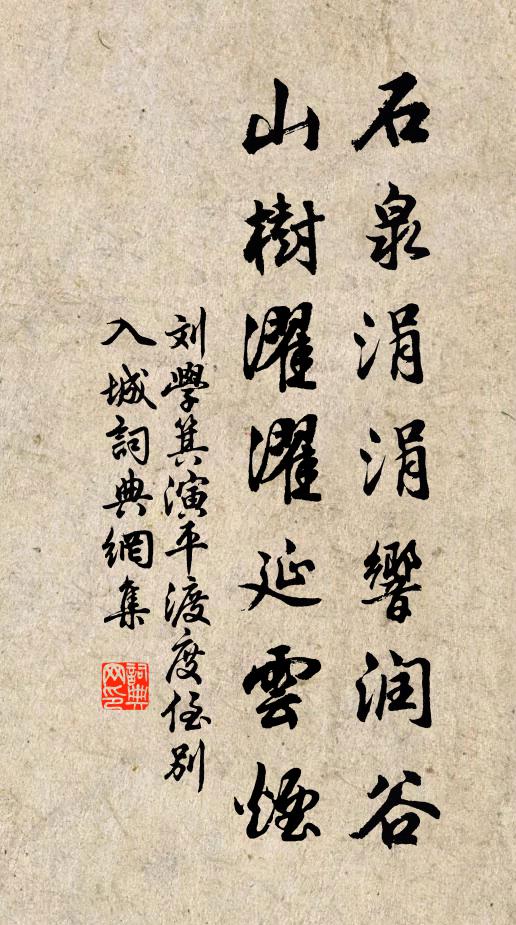 石泉涓涓響润谷
山樹濯濯延雲煙
刘學箕演平渡度侄别
入城詞典網集
詞典网印